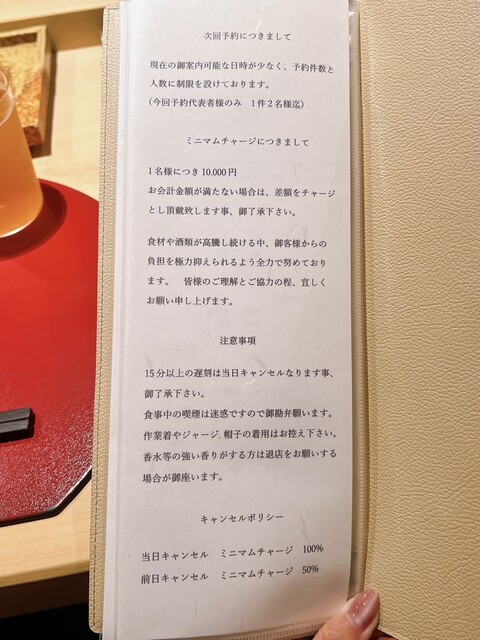 次回予約につきまして
現在の御案内可能な日時が少なく、予約件数と
人数に制限を設けております。
（今回予約代表者様のみ　1件２名様迄）
ミニマムチャージにつきまして
１名様につき 10,000 円
お会計金額が満たない場合は、差額をチャージ
とし頂戴致します事、御了承下さい。
食材や酒類が高騰し続ける中、御客様からの
負担を極力抑えられるよう全力で努めており
ます。　皆様のご理解とご協力の程、宜しく
お願い申し上げます。
注意事項
15 分以上の遅刻は当日キャンセルなります事、
御了承下さい。
食事中の喫煙は迷惑ですので御勘弁願います。
作業着やジャージ、帽子の着用はお控え下さい。
香水等の強い香りがする方は退店をお願いする
場合が御座います。
キャンセルポリシー
当日キャンセル　ミニマムチャージ　100%
前日キャンセル　ミニマムチャージ　50%